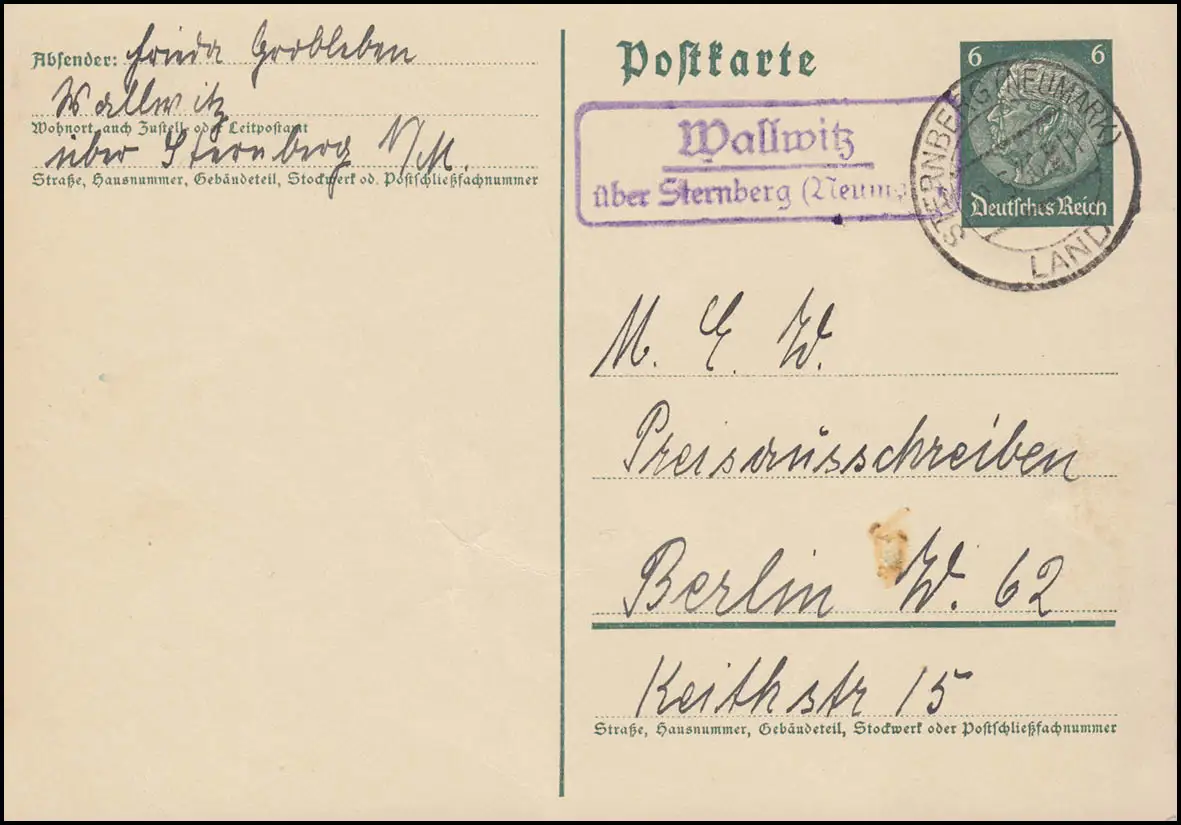 Absender: Frieda Grobleben
Wallwitz
Wohnort, auch Zustell- oder Leitpostamt
über Sternberg N/M.
Straße, Hausnummer, Gebäudeteil, Stockwerk od. Postschließfachnummer
Postkarte
6 6
Deutsches Reich
STERNBERG (NEUMARK)
LAND
Wallwitz
über Sternberg (Neum
M. E. W.
Preisausschreiben
Berlin W. 62
Keithstr 15
Straße, Hausnummer, Gebäudeteil, Stockwerk oder Postschließfachnummer